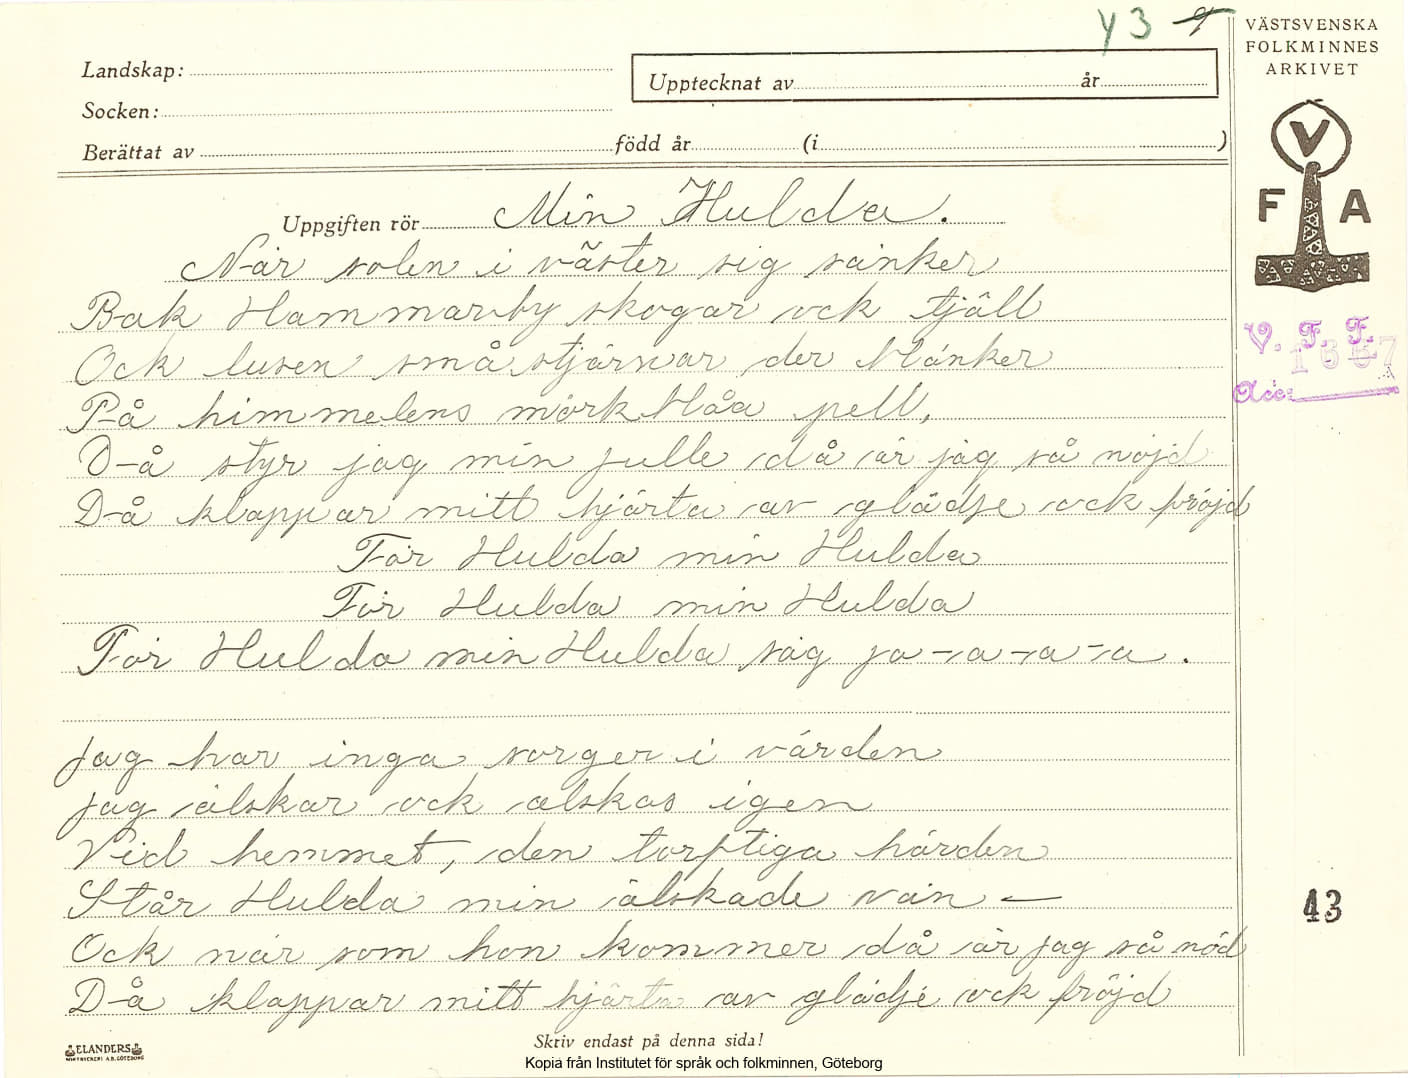 43
VÄSTSVENSKA
FOLKMINNES
ARKIVET
Landskap:
Upptecknat av år
Socken:
Berättat av född år (i )
V
F A
Uppgiften rör Min Hulda.
När solen i väster sig sänker
Bak Hammarby skogar ock tjäll
Ock lusen små stjärnar der blänker
På himmelens mörkblåa pell,
Då styr jag min julle då är jag så nöjd
Då klappar mitt hjärta av glädje ock fröjd
För Hulda min Hulda
För Hulda min Hulda
För Hulda min Hulda säg ja-a-a-a.
Jag har inga sorger i värden
Jag älskar ock älskas igen
Vid hemmet, den torftiga härden
Står Hulda min älskade vän —
Ock när som hon kommer då är jag så nöd
Då klappar mitt hjärta av glädje ock fröjd
V. F. F.
Acc:
43
ELANDERS
Skriv endast på denna sida!
Kopia från Institutet för språk och folkminnen, Göteborg